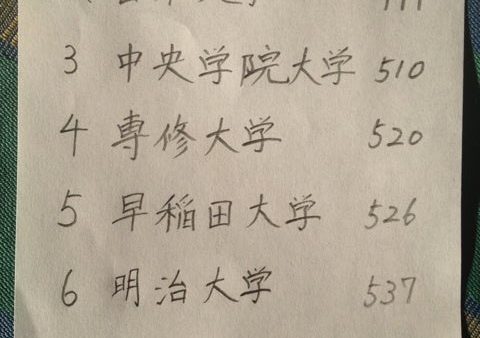 3 中央学院大学 510
4 専修大学 520
5 早稲田大学 526
6 明治大学 537